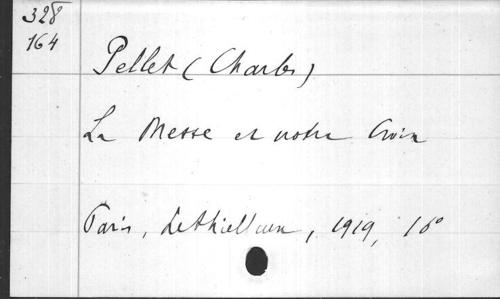 328
164
Pellet (Charles)
La Messe et notre Croix
Paris, Lethielleux, 1919, 16°